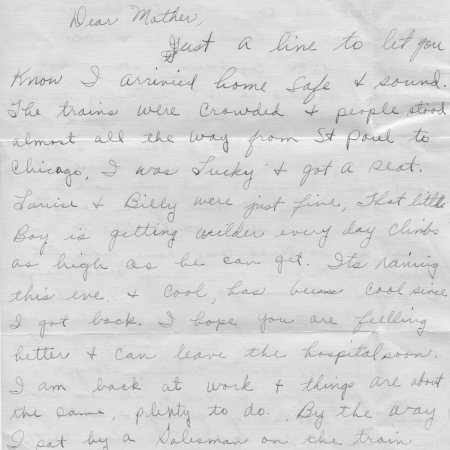 Dear Mother,
Just a line to let you
Know I arrivied home safe & sound.
The trains were crowded & people stood
almost all the way from St Paul to
Chicago, I was lucky & got a seat.
Louise & Billy were just fine, That little
Boy is getting wilder every day climbs
as high as he can get. Its raining
this eve. & cool, has been cool since
I got back. I hope you are fulling
better & can leave the hospital soon.
I am back at work & things are about
the same, plenty to do. By the way
I sat by a Salesman on the train